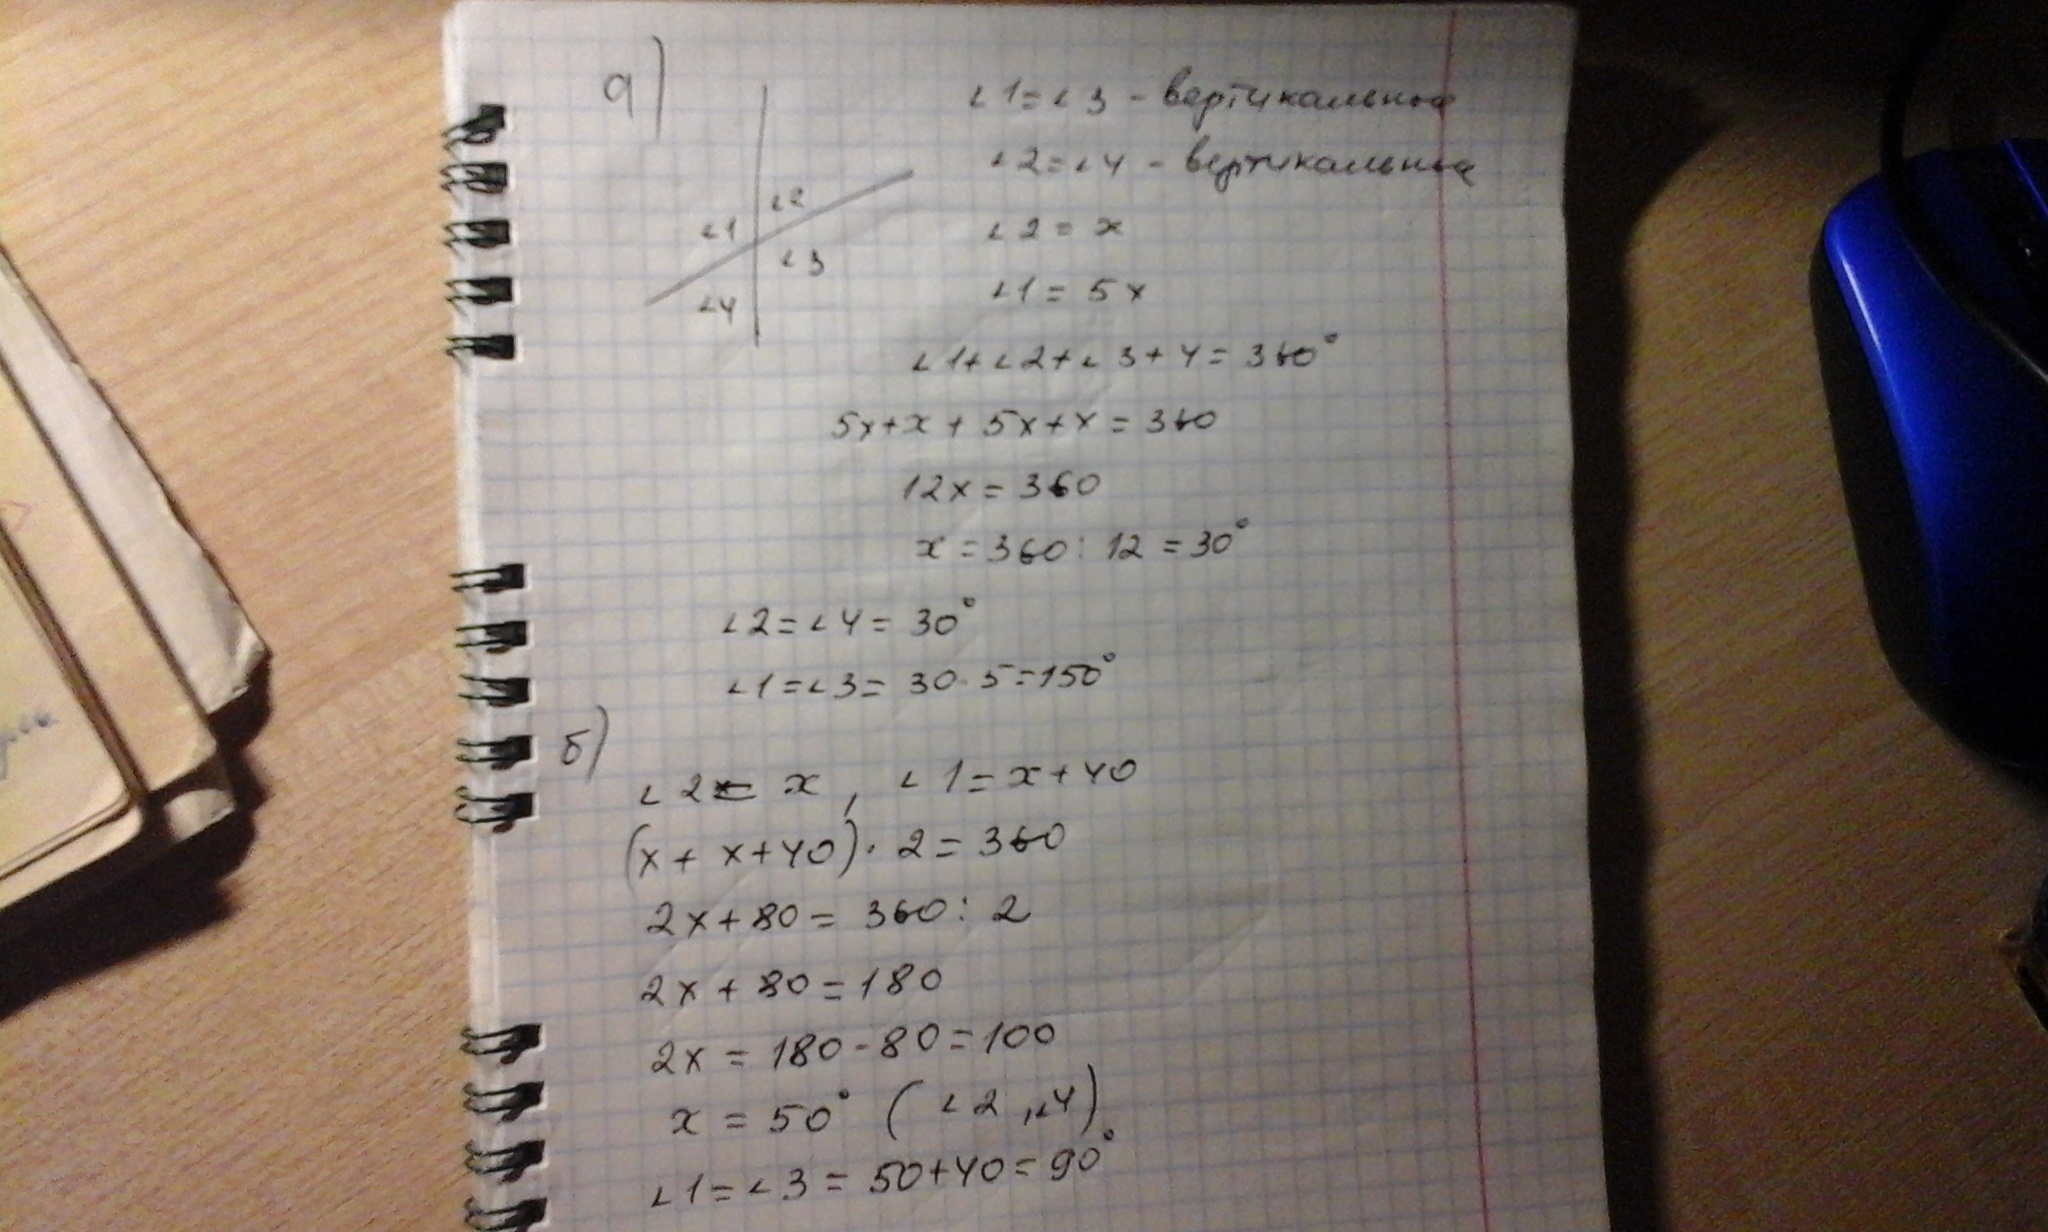 а)
∠1=∠3 - вертикальные
∠2=∠4 - вертикальные
∠2
∠1
∠3
∠4
∠2 = x
∠1 = 5x
∠1+∠2+∠3+4=360°
5x+x+5x+x=360
12x=360
x=360:12=30°
∠2=∠4=30°
∠1=∠3=30·5=150°
б)
∠2= x, ∠1=x+40
(x+x+40)·2=360
2x+80=360:2
2x+80=180
2x=180-80=100
x=50° (∠2,∠4)
∠1=∠3=50+40=90°